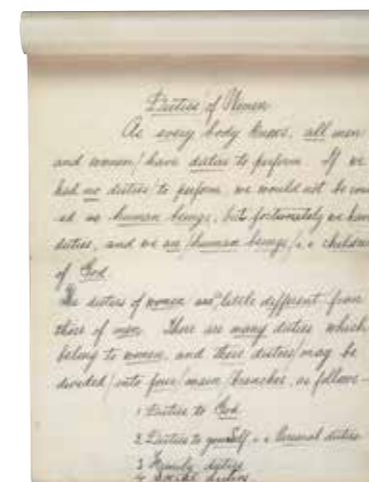 Duties of Women
As every body knows, all men
and women/have duties to perform. If we
had no duties to perform, we would not be count
ed as human beings, but fortunately we have
duties, and we are/human beings/i.e children
of God.
The duties of women are, little different from
those of men. There are many duties which
belong to women, and these duties/may be
devided/into four/main branches, as follows—
1 Duties to God
2 Duties to yourself i.e Personal duties
3 Family duties
4 Social duties